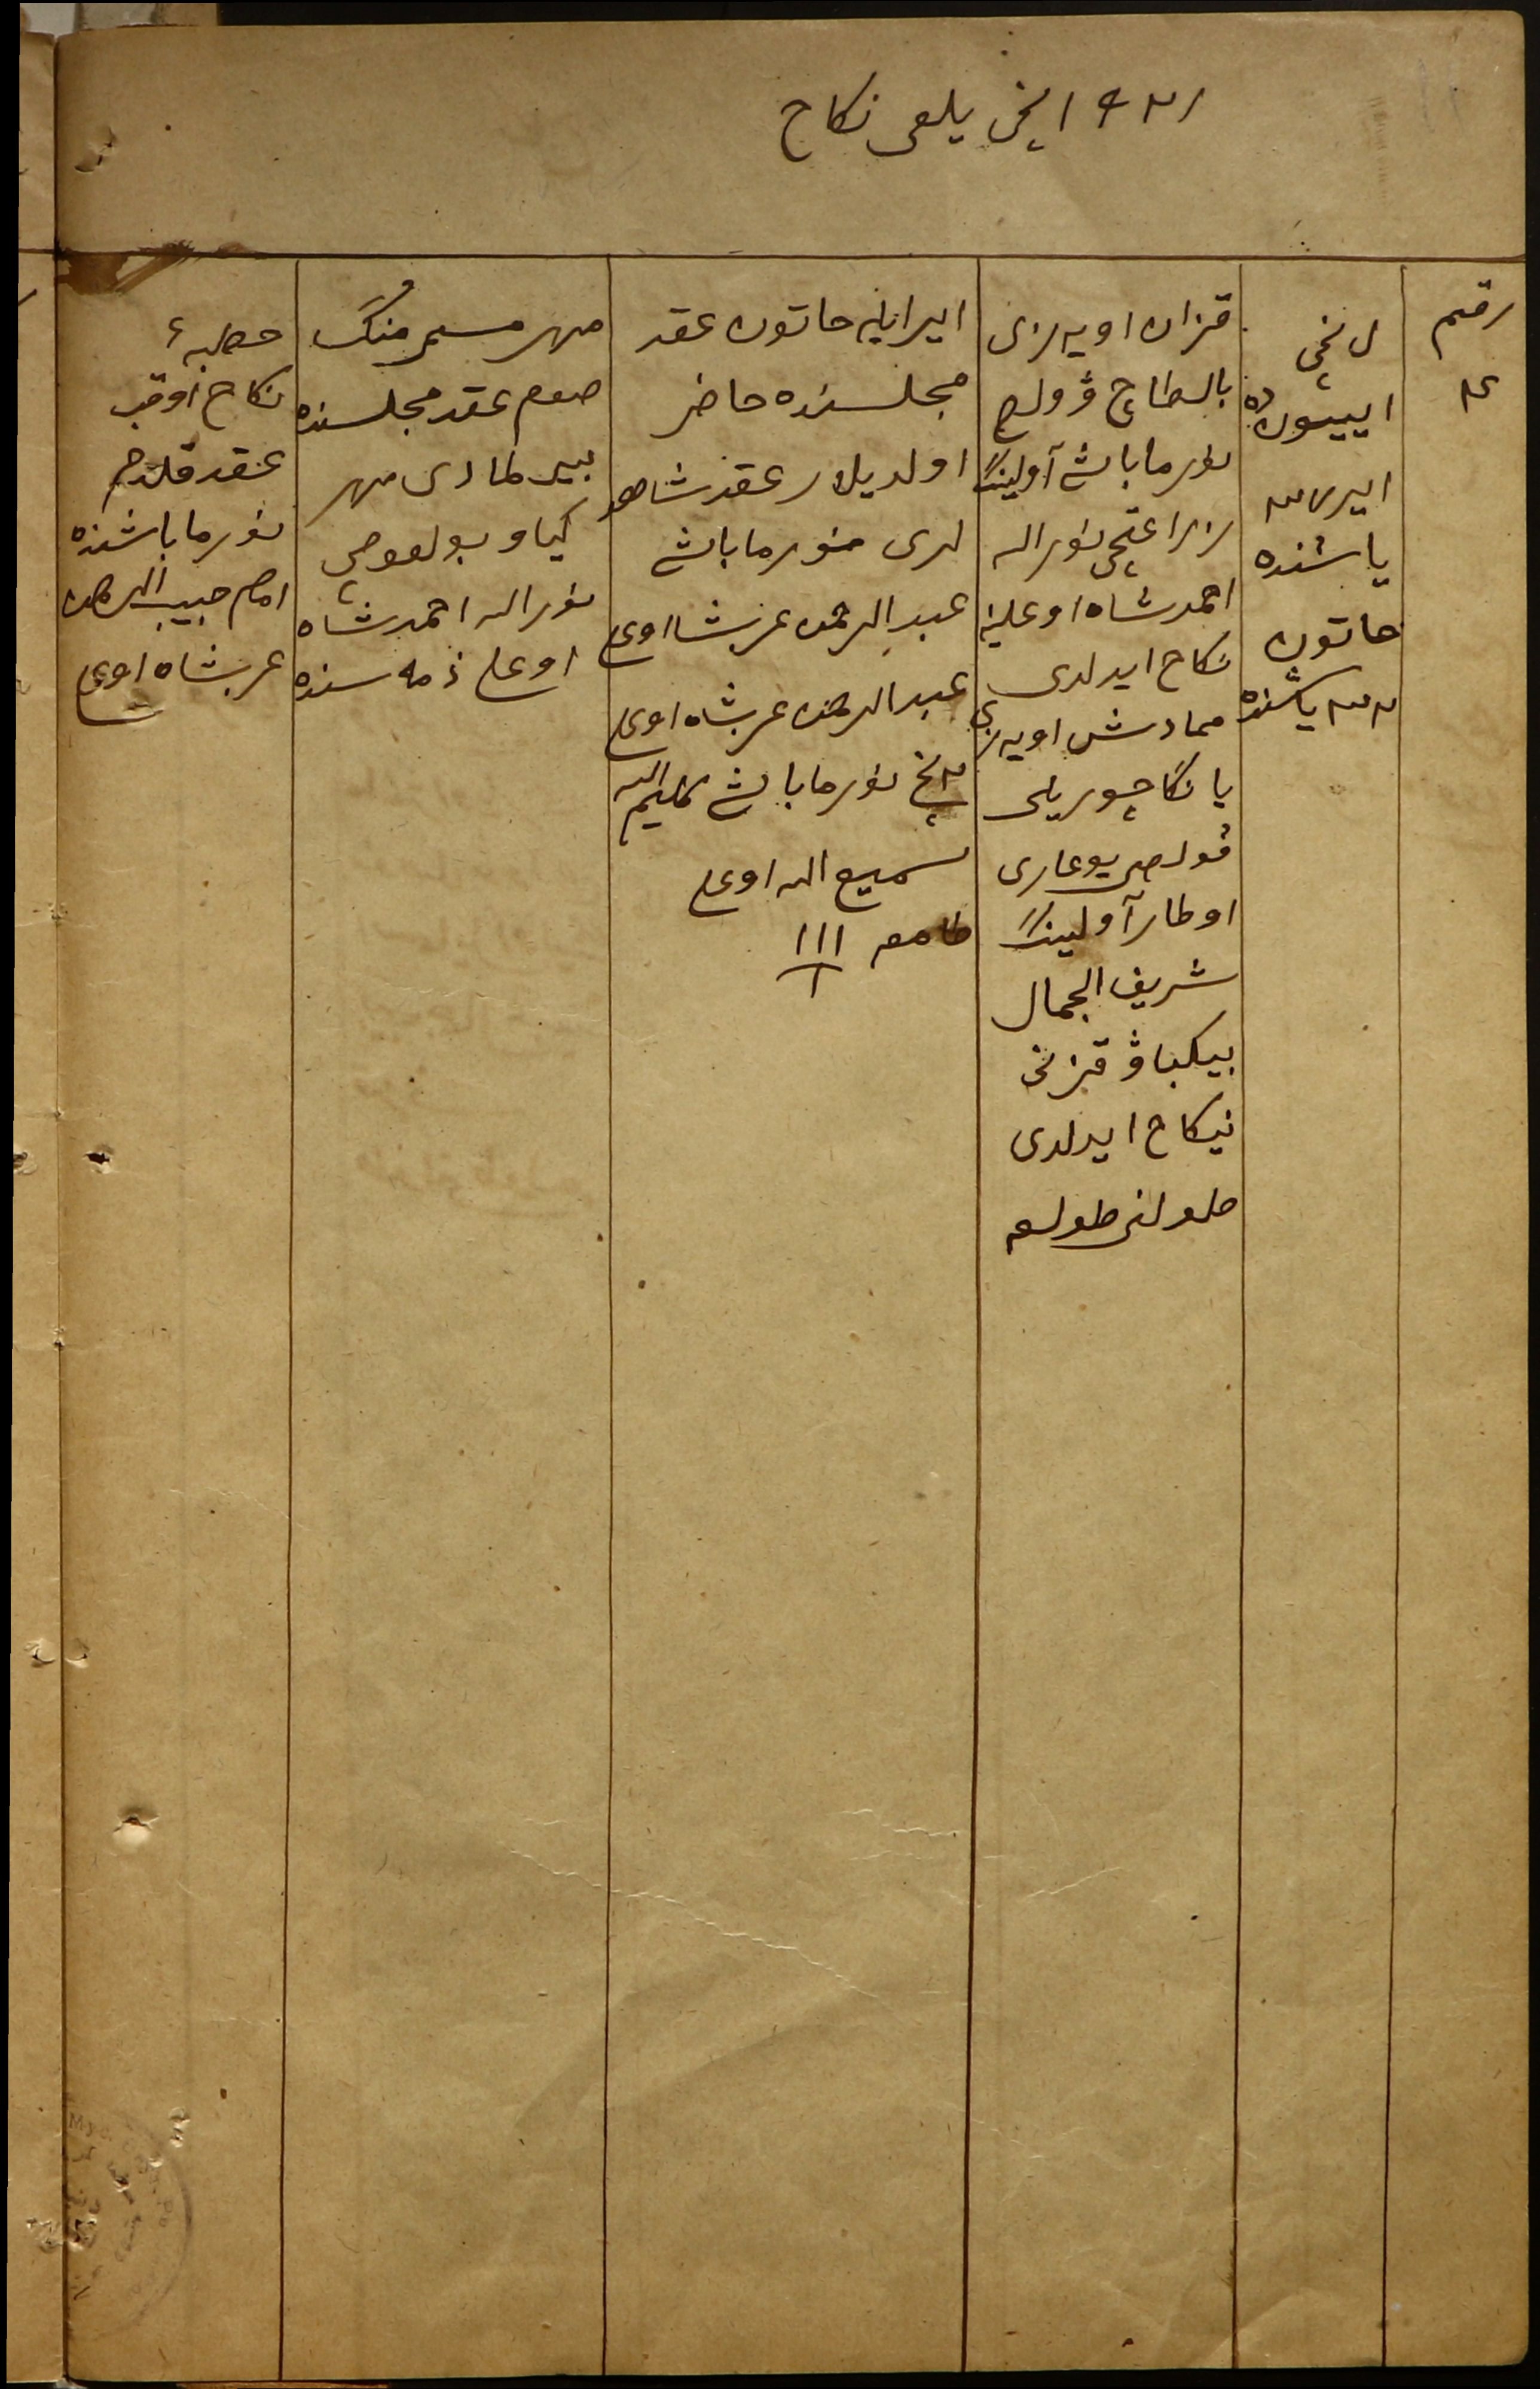 ۱۹۲۱ ینچی یلغی نکاح
رقم
۴
نچی
اییونده
ایر ۳۳
یاشنده
خاتون
۲۳ یاشنده
قزان اویازی
بالطاچ ۋولص
نورما باش آولینڭ
زراعتچی نورالله
احمدشاه اوغلینه
نکاح ایدلدی
ممادش اویازی
یاڭاچوریلی
ۋولصی یوغاری
اوطار آولینڭ
شریف الجمال
بیکباۋ قزنی
نیکاح ایدلدی
طولنی طولغه
ایرایله خاتون عقد
مجلسنده حاضر
اولدیلار عقد شاهد
لری نورما باش
عبدالرحمن عربشا اوغلی
عبدالرحمن عربشاه اوغلی
۲نچی نورما باش کلیم الله
سمیع الله اوغلی
طامغه III
مهر مسمی منڭ
صوم عقد مجلسنده
بیرلمادی مهر
کیاو بولغوچی
نورالله احمدشاه
اوغلی ذمه سنده
خطبۀ
نکاح اوقب
عقد قلدم
نورما باشنده
امام حبیب الرحمن
عربشاه اوغلی